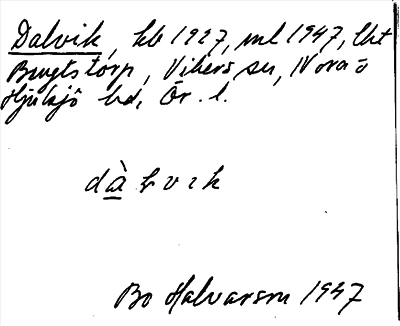 Dalvik, hb 1927, ml 1947, lht
Bengtstorp, Vikers sn, Nora o
Hjulsjö bd, Ör. l.
dàlvik
Bo Halvarson 1947